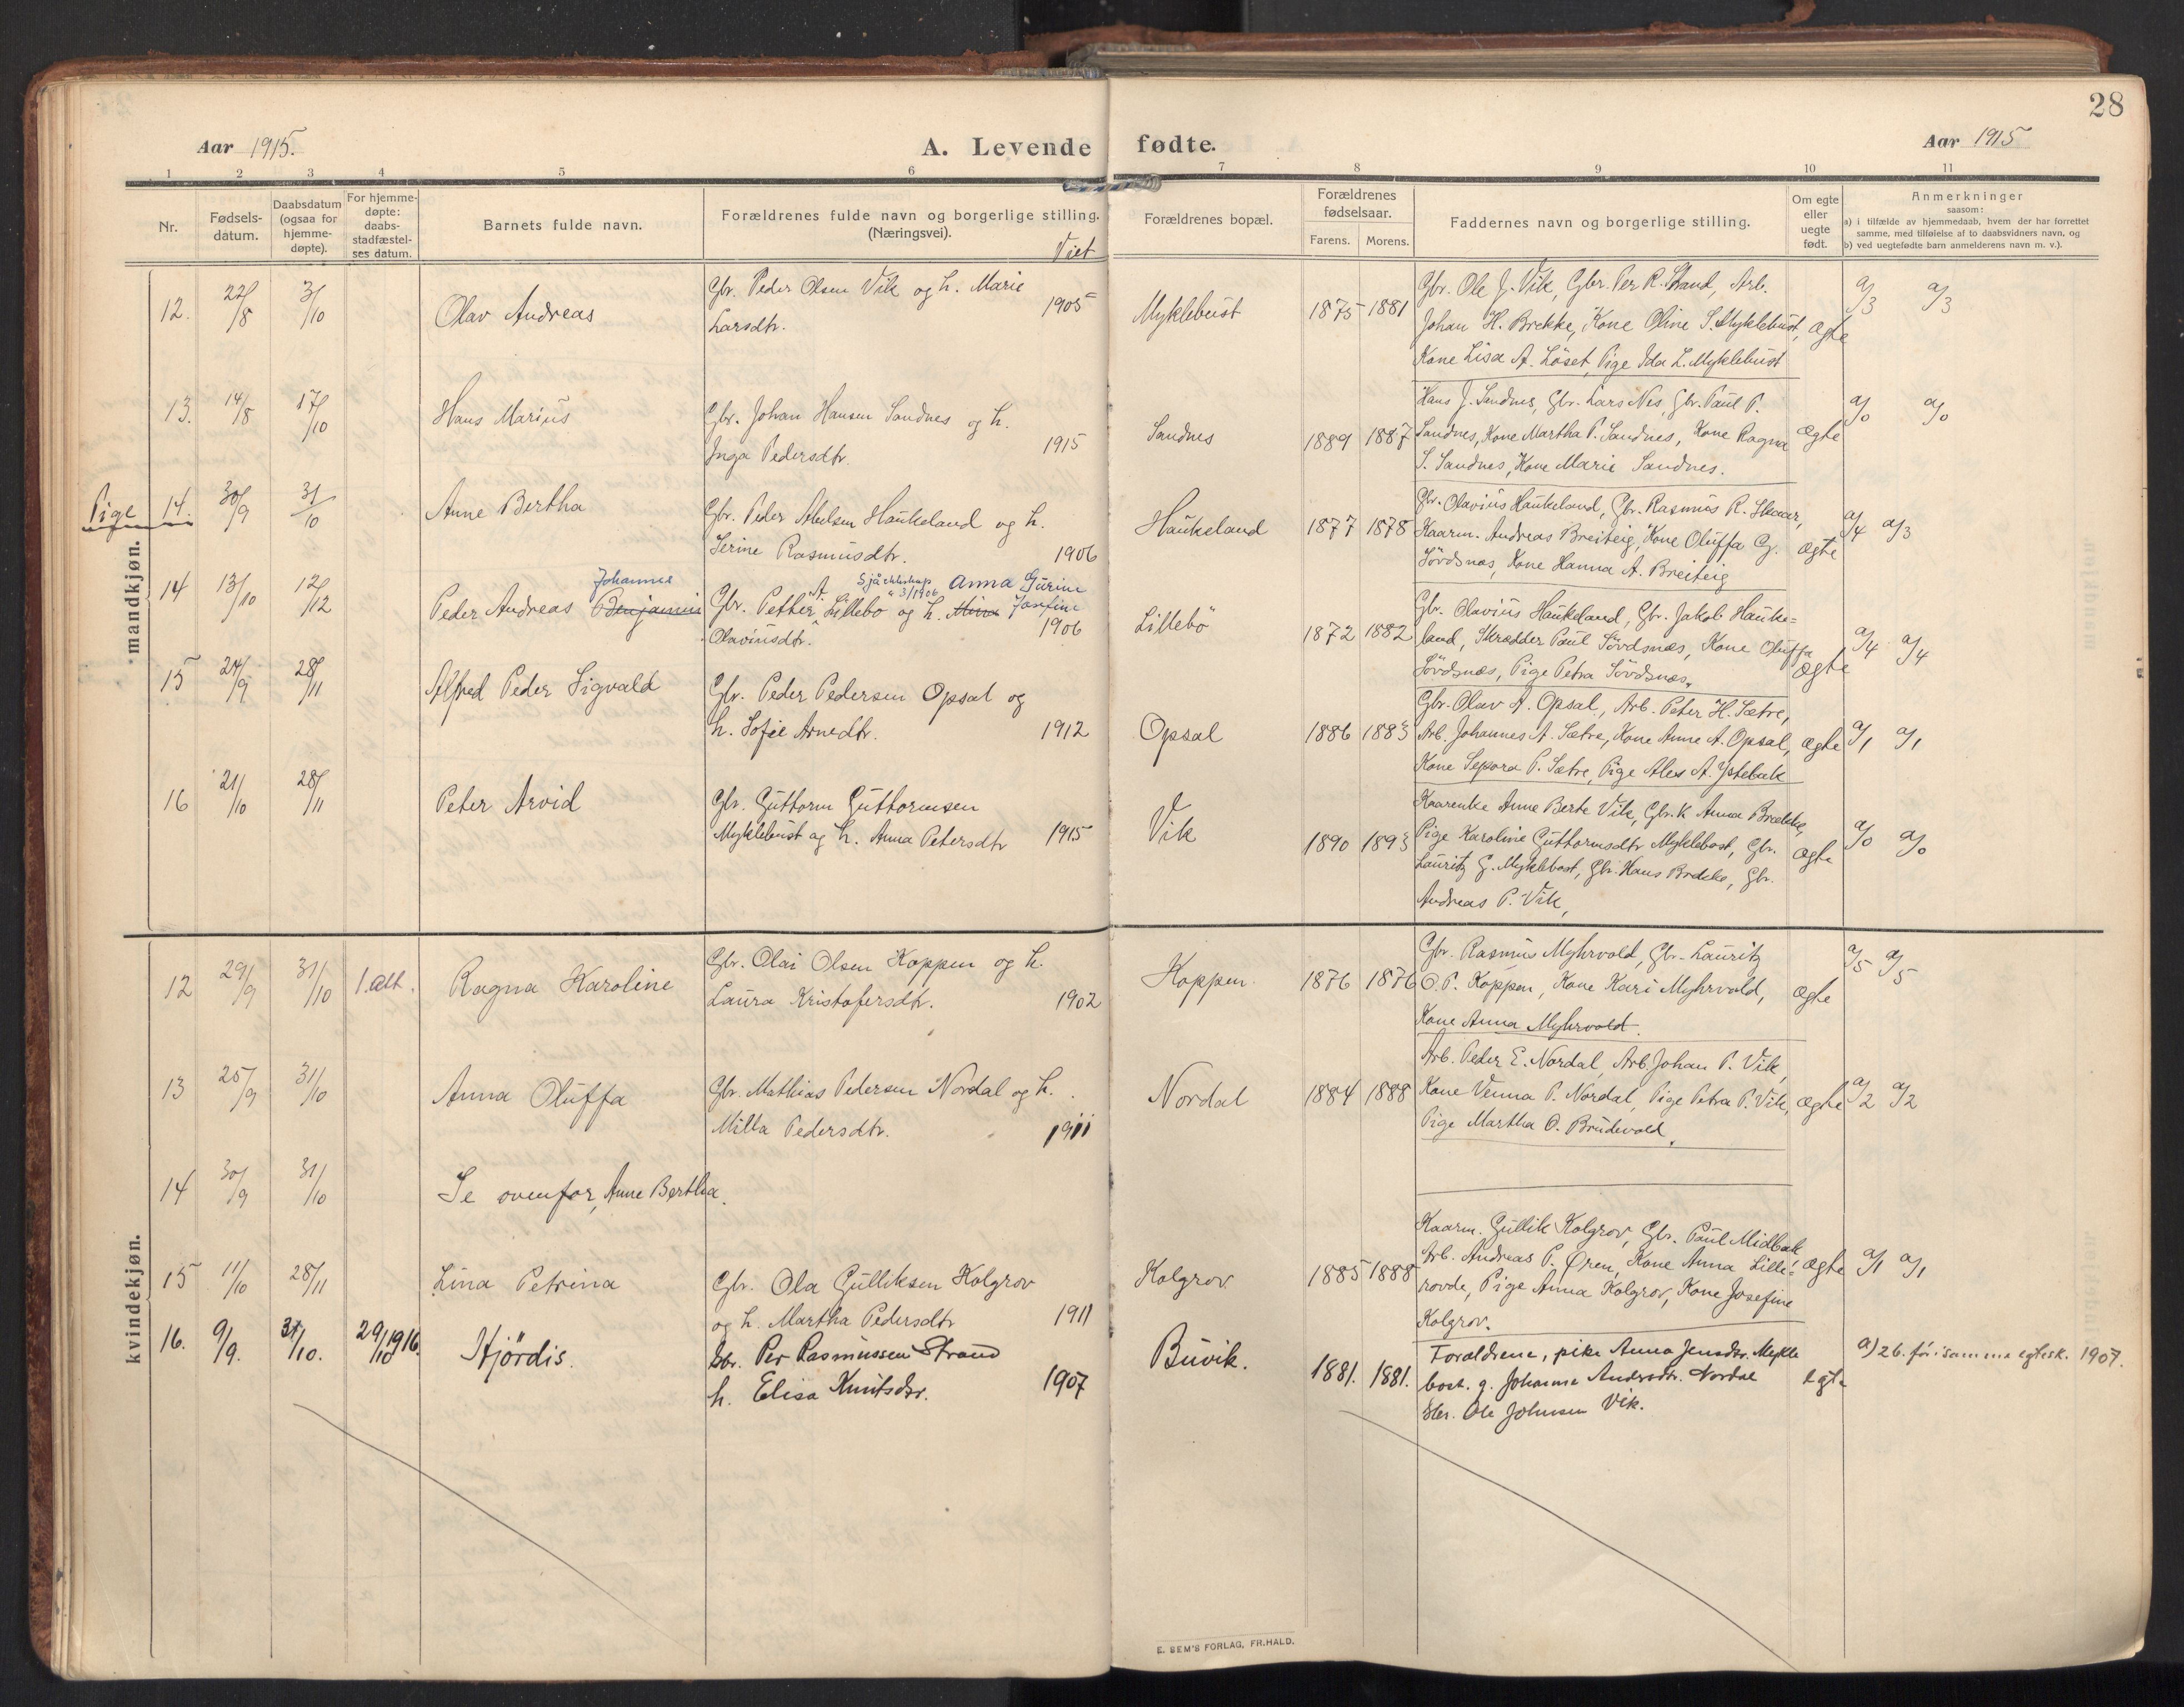 28
Aar 1915.
A. Levende fødte.
Aar 1915
1 2 3 4 5 6 7 8 9 10 11
Nr.
Fødsels-
datum.
Daabsdatum
(ogsaa for
hjemme-
døpte).
For hjemme-
døpte:
daabs-
stadfæstel-
ses datum.
Barnets fulde navn.
Forældrenes fulde navn og borgerlige stilling.
(Næringsvei).
Viet
Forældrenes bopæl.
Forældrenes
fødselsaar.
Farens. Morens.
Faddernes navn og borgerlige stilling.
Om egte
eller
uegte
født.
Anmerkninger
saasom:
a) i tilfælde av hjemmedaab, hvem der har forrettet
samme, med tilføielse af to daabsvidners navn, og
b) ved uegtefødte barn anmelderens navn m. v.).
mandkjøn.
12. 22/8 3/10 Olav Andreas
Gbr. Peder Olsen Vik og h. Marie
Larsdtr. 1905
Myklebust 1875 1881
Gbr. Ole J. Vik, Gbr. Per R. Strand, Arb.
Johan H. Brekke, Kone Oline S. Myklebust,
Kone Lisa A. Löset, Pige Ida L. Myklebust
Ægte a/3 a/3
13. 14/8 17/10 Hans Marius
Gbr. Johan Hansen Sandnes og h.
Inga Pedersdtr. 1915
Sandnes 1889 1887
Hans J. Sandnes, Gbr. Lars Nes, Gbr. Paul P.
Sandnes, Kone Martha P. Sandnes, Kone Ragna
S. Sandnes, Kone Marie Sandnes.
Ægte a/0 a/0
Pige 14. 30/9 31/10 Anne Bertha
Gbr. Peder Abelsen Haukeland og h.
Serine Rasmusdtr. 1906
Haukeland 1877 1878
Gbr. Olavius Haukeland, Gbr. Rasmus R. Skaar,
Kaarm. Andreas Breiteig, Kone Oluffa G.
Sördsnæs, Kone Hanna A. Breiteig
Ægte a/4 a/3
14 13/10 12/12 Peder Andreas Benjamin Johannes
Gbr. Petter A. Lillebö og h. Mina Anna Gurine Josefine
Olaviusdtr. 1906
Lillebö 1872 1882
Gbr. Olavius Haukeland, Gbr. Jakob Hauke=
land, Skrædder Paul Sördsnæs, Kone Oluffa
Sördsnæs, Pige Petra Sördsnæs.
Ægte a/4 a/4
15 24/9 28/11 Alfred Peder Sigvald
Gbr. Peder Pedersen Opsal og
h. Sofie Arnedtr. 1912
Opsal 1886 1883
Gbr. Olav A. Opsal, Arb. Peter H. Sætre,
Arb. Johannes A. Sætre, Kone Anne A. Opsal,
Kone Sepora P. Sætre, Pige Alex A. Ystebak
Ægte a/1 a/1
16 21/10 28/11 Peter Arvid
Gbr. Guttorm Guttormsen
Myklebust og h. Anna Petersdtr 1915
Vik 1890 1893
Kaarenke Anne Berte Vik, Gbr. K Anna Brække,
Pige Karoline Guttormsdtr Myklebost, Gbr.
Lauritz G. Myklebost, Gbr. Hans Brekke, Gbr.
Andreas P. Vik,
Ægte a/0 a/0
kvindekjøn.
12 29/9 31/10 1. alt. Ragna Karoline
Gbr. Olai Olsen Koppen og h.
Laura Kristofersdtr. 1902
Koppen. 1876 1876
Gbr. Rasmus Myhrvold, Gbr. Lauritz
O. P. Koppen, Kone Kari Myhrvold,
Kone Anna Myhrvold.
Ægte a/5 a/5
13 25/9 31/10 Anna Oluffa
Gbr. Mathias Pedersen Nordal og h.
Milla Pedersdtr. 1911
Nordal 1884 1888
Arb. Peder E. Nordal, Arb. Johan P. Vik,
Kone Venna P. Nordal, Pige Petra P. Vik,
Pige Martha O. Brudevold.
Ægte a/2 a/2
14 30/9 31/10 Se ovenfor, Anne Bertha.
15 11/10 28/11 Lina Petrina
Gbr. Ola Gulliksen Kolgrov
og h. Martha Pedersdtr 1911
Kolgrov 1885 1888
Kaarm. Gullik Kolgrov, Gbr. Paul Midbøk,
Arb. Andreas P. Øren, Kone Anna Lille=
rovde, Pige Anna Kolgrov, Kone Josefine
Kolgrov.
Ægte a/1 a/1
16. 9/9. 31/10. 29/10 1916. Hjördis.
Gbr. Per Rasmussen Strand
h. Elisa Knutsdtr. 1907
Buvik. 1881. 1881.
Forældrene, pike Anna Jensdtr. Mykle
bost. g. Johanna Andersdtr. Nordal
Gbr. Ole Johnsen Vik.
egte a) 2 b. før i samme egtesk. 1907.
E. SEM'S FORLAG, FR.HALD.